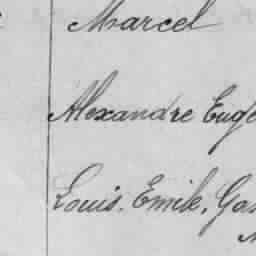 Marcel
Alexandre Euge
Louis. Emile, Gas